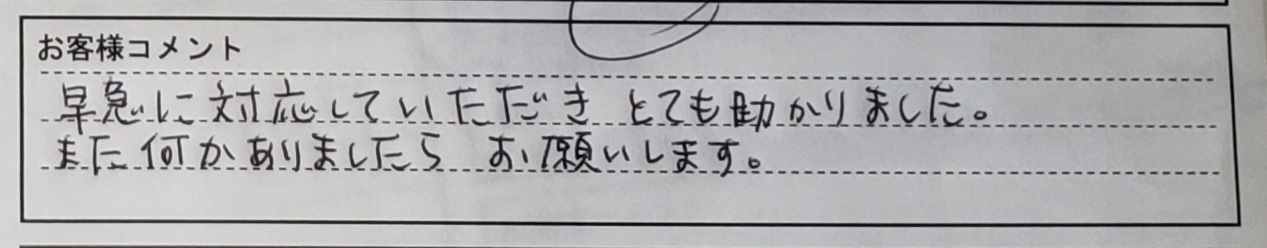 お客様コメント
早急に対応していただき とても助かりました。
また何かありましたら お願いします。